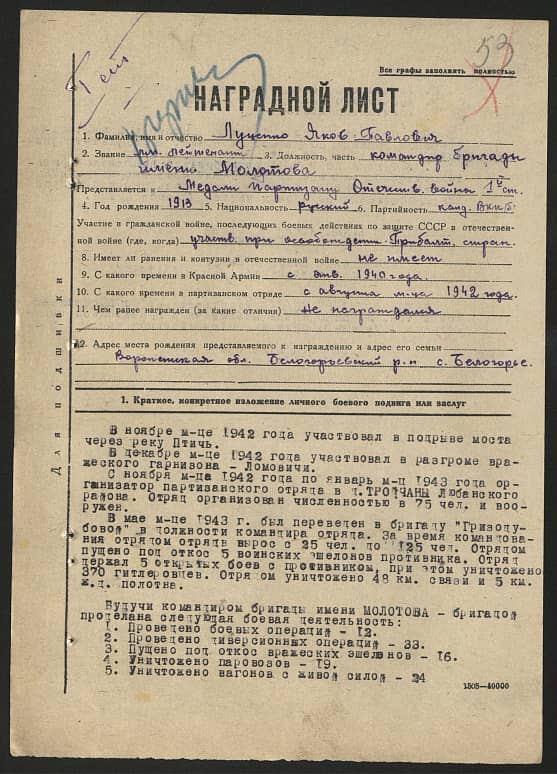 53
Все графы заполнять полностью
НАГРАДНОЙ ЛИСТ
1. Фамилия, имя и отчество Луценко Яков Павлович
2. Звание мл. лейтенант 3. Должность, часть командир бригады
имени Молотова
Представляется к Медали Партизану Отечеств. война 1й ст.
4. Год рождения 1913 5. Национальность русский 6. Партийность канд. ВКП(б)
Участие в гражданской войне, последующих боевых действиях по защите СССР в отечествен-
ной войне (где, когда) участв. при освобождении Прибалт. стран.
8. Имеет ли ранения и контузии в отечественной войне не имеет
9. С какого времени в Красной Армии с янв. 1940 года.
10. С какого времени в партизанском отряде с августа м-ца 1942 года.
11. Чем ранее награжден (за какие отличия) Не награждался
12. Адрес места рождения представляемого к награждению и адрес его семьи
Воронежская обл. Белогорьевский р-н с. Белогорье.
Для подшивки
1. Краткое, конкретное изложение личного боевого подвига или заслуг
В ноябре м-це 1942 года участвовал в подрыве моста
через реку Птичь.
В декабре м-це 1942 года участвовал в разгроме вра-
жеского гарнизона - Ломовичи.
С ноября м-ца 1942 года по январь м-ц 1943 года ор-
ганизатор партизанского отряда в д.ТРОЙЧАНЫ Любанского
района. Отряд организован численностью в 75 чел. и воо-
ружен.
В мае м-це 1943 г. был переведен в бригаду "Гризоду-
бовой" в должности командира отряда. За время командова-
ния отрядом отряд вырос с 25 чел. до 125 чел. Отрядом
пущено под откос 5 воинских эшелонов противника. Отряд
держал 5 открытых боев с противником, при этом уничтожено
370 гитлеровцев. Отрядом уничтожено 48 км. связи и 5 км.
ж.д. полотна.
Будучи командиром бригады имени МОЛОТОВА - бригадой
проделана следующая боевая деятельность:
1. Проведено боевых операций - 12.
2. Проведено диверсионных операций - 33.
3. Пущено под откос вражеских эшелонов - 16.
4. Уничтожено паровозов - 19.
5. Уничтожено вагонов с живой силой - 24
1505—40000